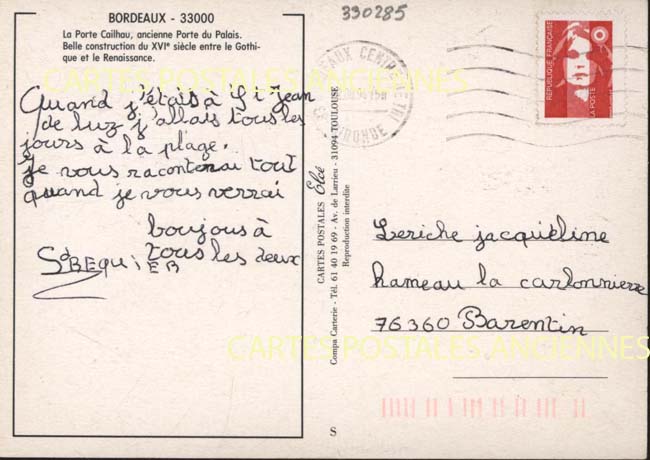 BORDEAUX - 33000
La Porte Cailhau, ancienne Porte du Palais.
Belle construction du XVIe siècle entre le Gothi-
que et le Renaissance.
330285
Quand j'étais à St Jean
de luz j'allais tous les
jours à la plage.
je vous raconterai tout
quand je vous verrai
boujous à
tous les deux
CARTES POSTALES Elcé
Compa Carterie - Tél. 61 40 19 69 - Av. de Larrieu - 31094 TOULOUSE
Reproduction interdite
S
RÉPUBLIQUE FRANÇAISE
LA POSTE
Leriche jacqueline
hameau la carbonnière
76360 Barentin
CARTES POSTALES ANCIENNES
CARTES POSTALES ANCIENNES